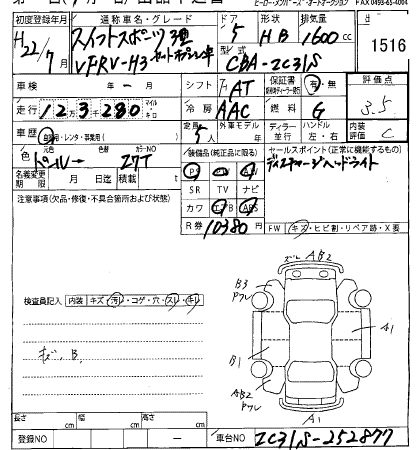 FAX 0493-65-4004
初度登録年月 通称車名・グレード ドア 形状 排気量
H22/7 スイフトスポーツ 3型 5 HB 1600cc
VFRV-H3 セットオプション車 型式 CBA-ZC31S
1516
車検 年 ー 月 シフト 7AT 保証書 有・無 評価点
走行 123280 マイル キロ 冷房 AAC 燃料 G 3.5
車歴 自家用・レンタ・事業用( ) 定員 5人 外車モデル 年 ディーラー 並行 ハンドル 左・右 内装評価 C
色 元色 色替 カラーNO 装備品(純正品に限る) セールスポイント(正常に機能するもの)
パール→ Z7T ディスチャージヘッドライト
名義変更期限 月 日 積載 t SR TV ナビ
注意事項(欠品・修復・不具合箇所および状態) カワ エアB ABS
R券 10380 円 FW キズ・ヒビ割・リペア跡・X要
検査員記入 内装 キズ・汚レ・コゲ・穴・スレ・キレ
キズ、B、
AB2
B3
Pワレ
A1
B1
AB2
Pワレ
A1
長さ cm 幅 cm 高さ cm
登録NO ー 車台NO ZC31S-252877